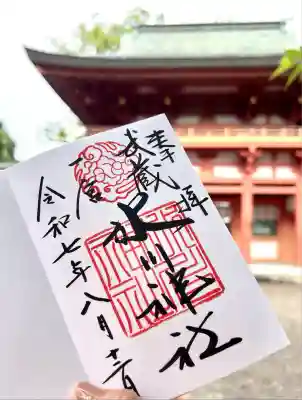 奉拝
武蔵一宮
氷川神社
令和七年八月十一日